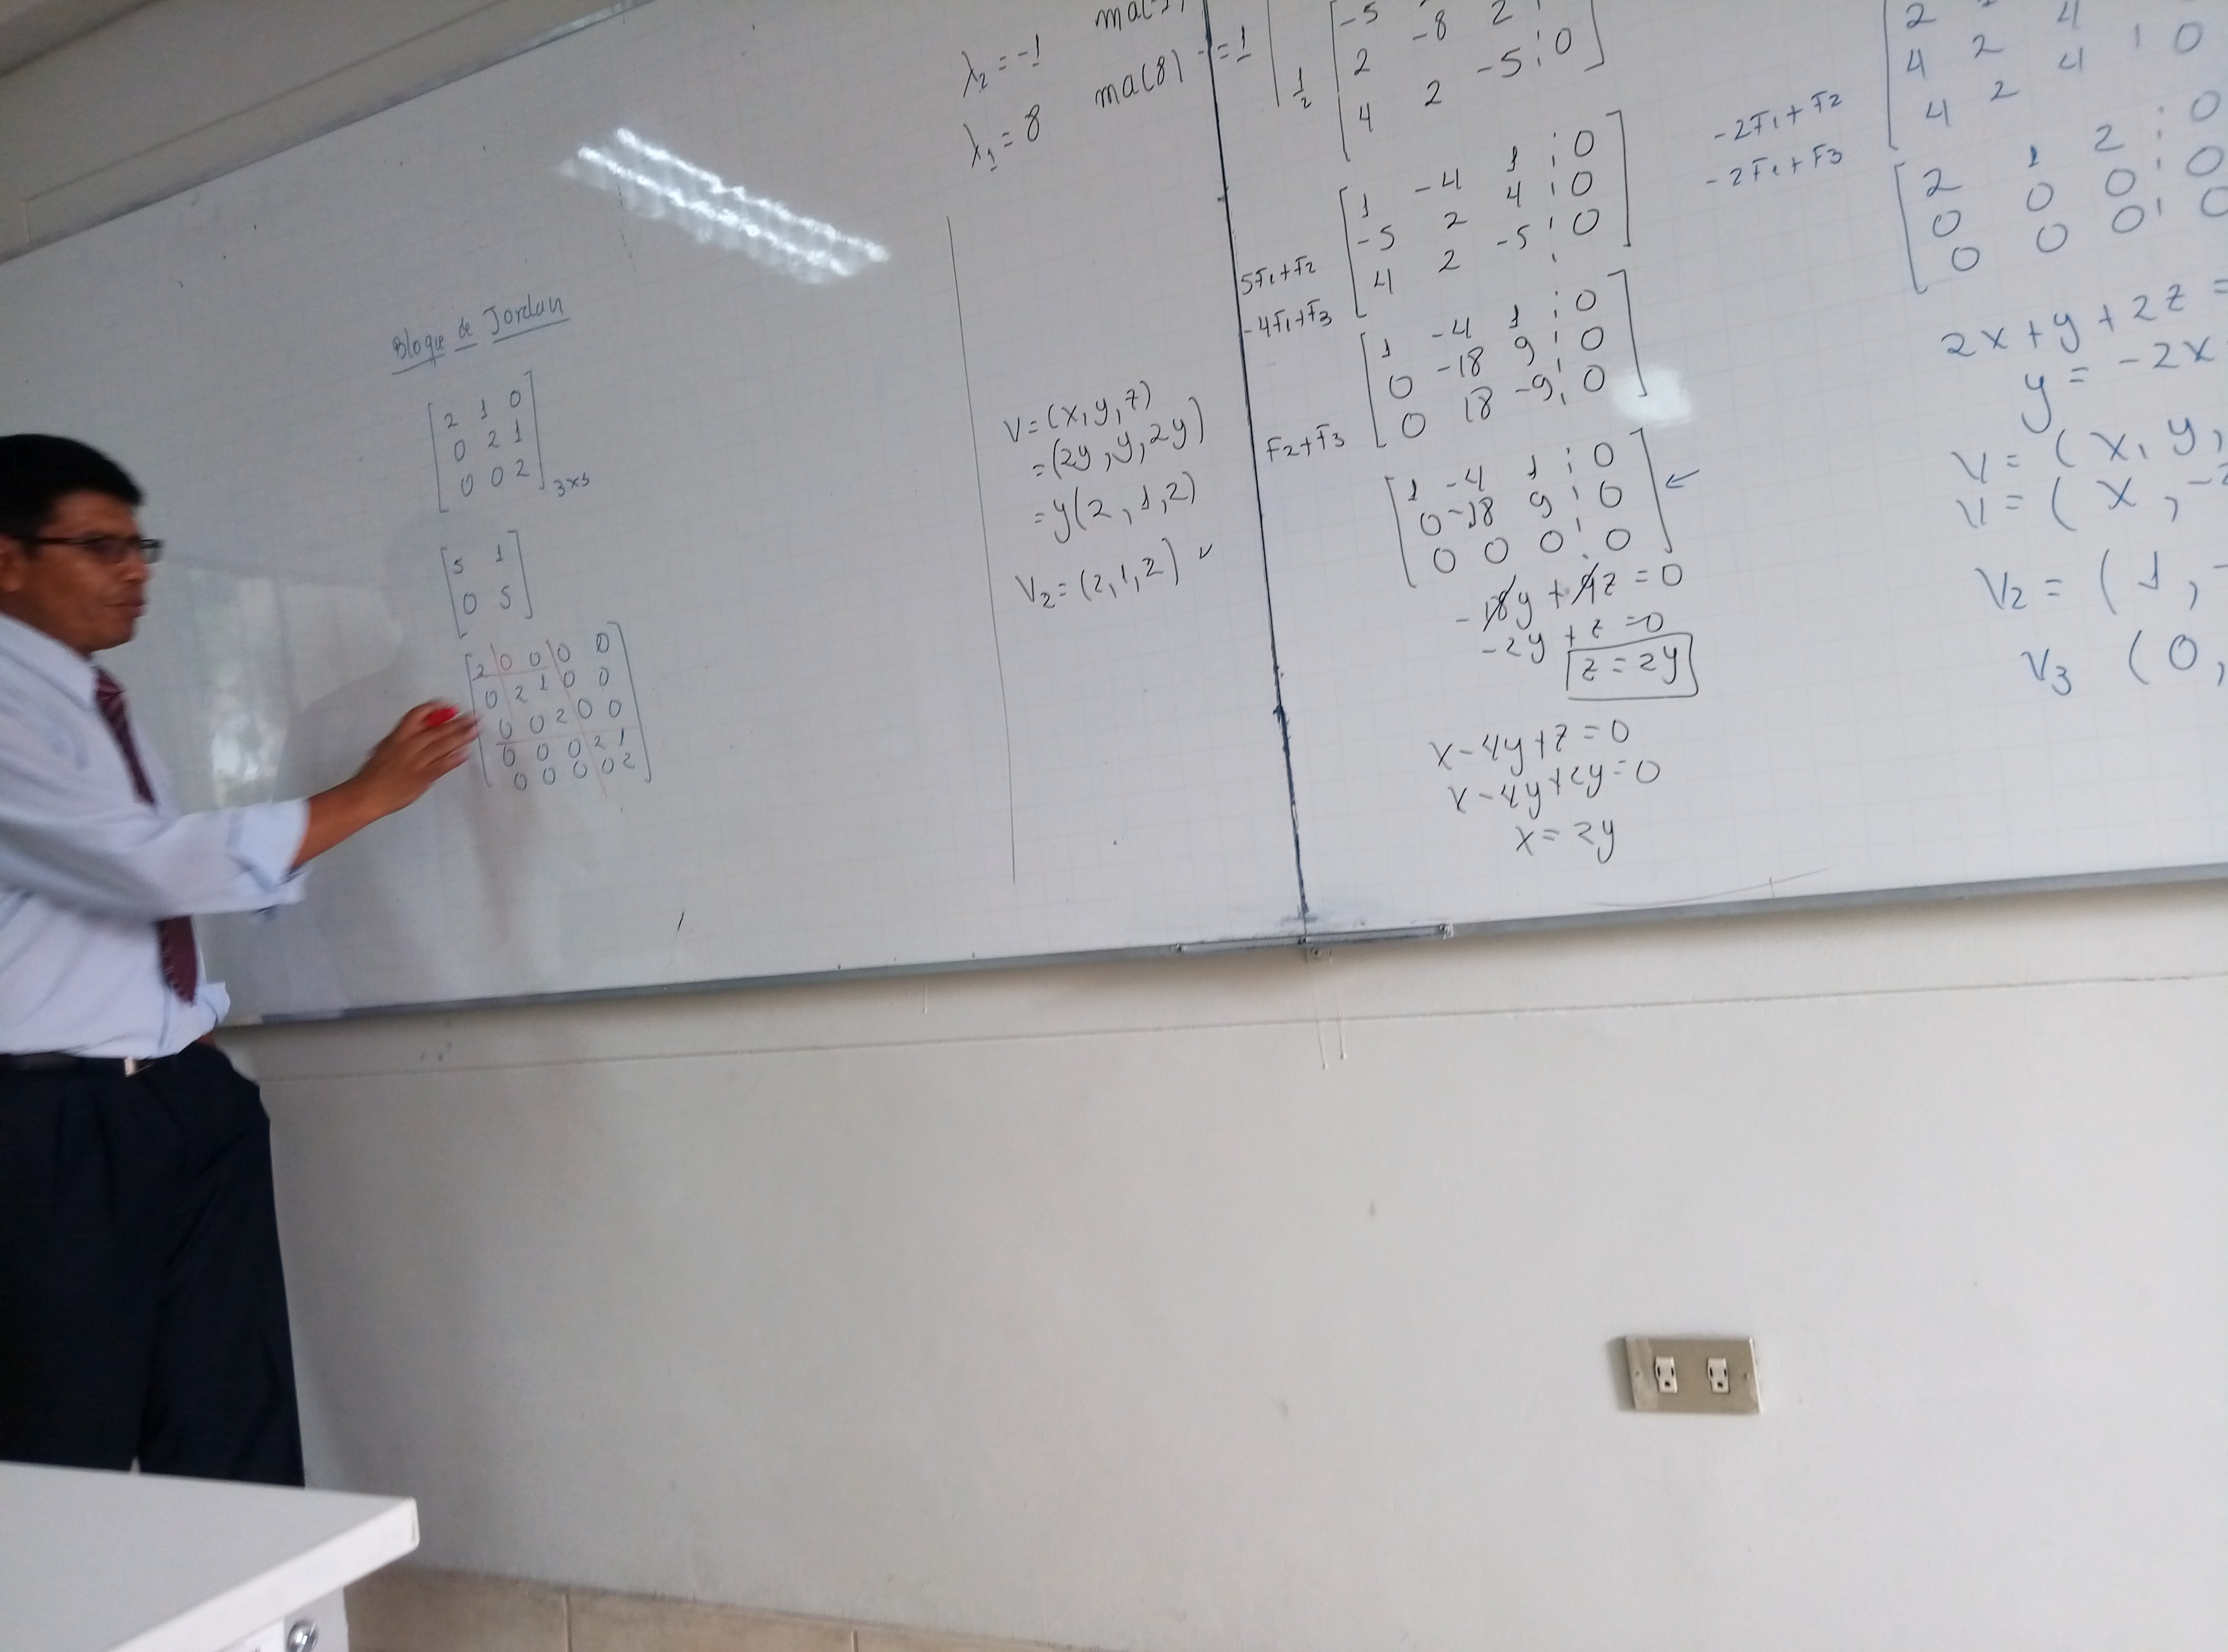 Bloque de Jordan
[2 1 0
0 2 1
0 0 2] 3x3
[5 1
0 5]
[2 0 0 0 0
0 2 1 0 0
0 0 2 0 0
0 0 0 2 1
0 0 0 0 2]
λ₂ = -1
λ₁ = 8 ma(8) = 1
V = (x, y, z)
= (2y, y, 2y)
= y(2, 1, 2)
V₂ = (2, 1, 2) ✓
[-5
2 -8 2
4 2 -5 ¦ 0]
1/2
[1 -4 1 ¦ 0
-5 2 4 ¦ 0
4 2 -5 ¦ 0]
5F₁+F₂
-4F₁+F₃
[1 -4 1 ¦ 0
0 -18 9 ¦ 0
0 18 -9 ¦ 0]
F₂+F₃
[1 -4 1 ¦ 0
0 -18 9 ¦ 0
0 0 0 ¦ 0] ←
-18y + 9z = 0
-2y + z = 0
z = 2y
x - 4y + z = 0
x - 4y + 2y = 0
x = 2y
4 2 4 ¦ 0
4 2 4
-2F₁+F₂
-2F₁+F₃
[2 1 2 ¦ 0
0 0 0 ¦ 0
0 0 0 ¦ 0
2x + y + 2z =
y = -2x
V = (x, y,
V = (x, -2
V₂ = (1, -
V₃ (0,